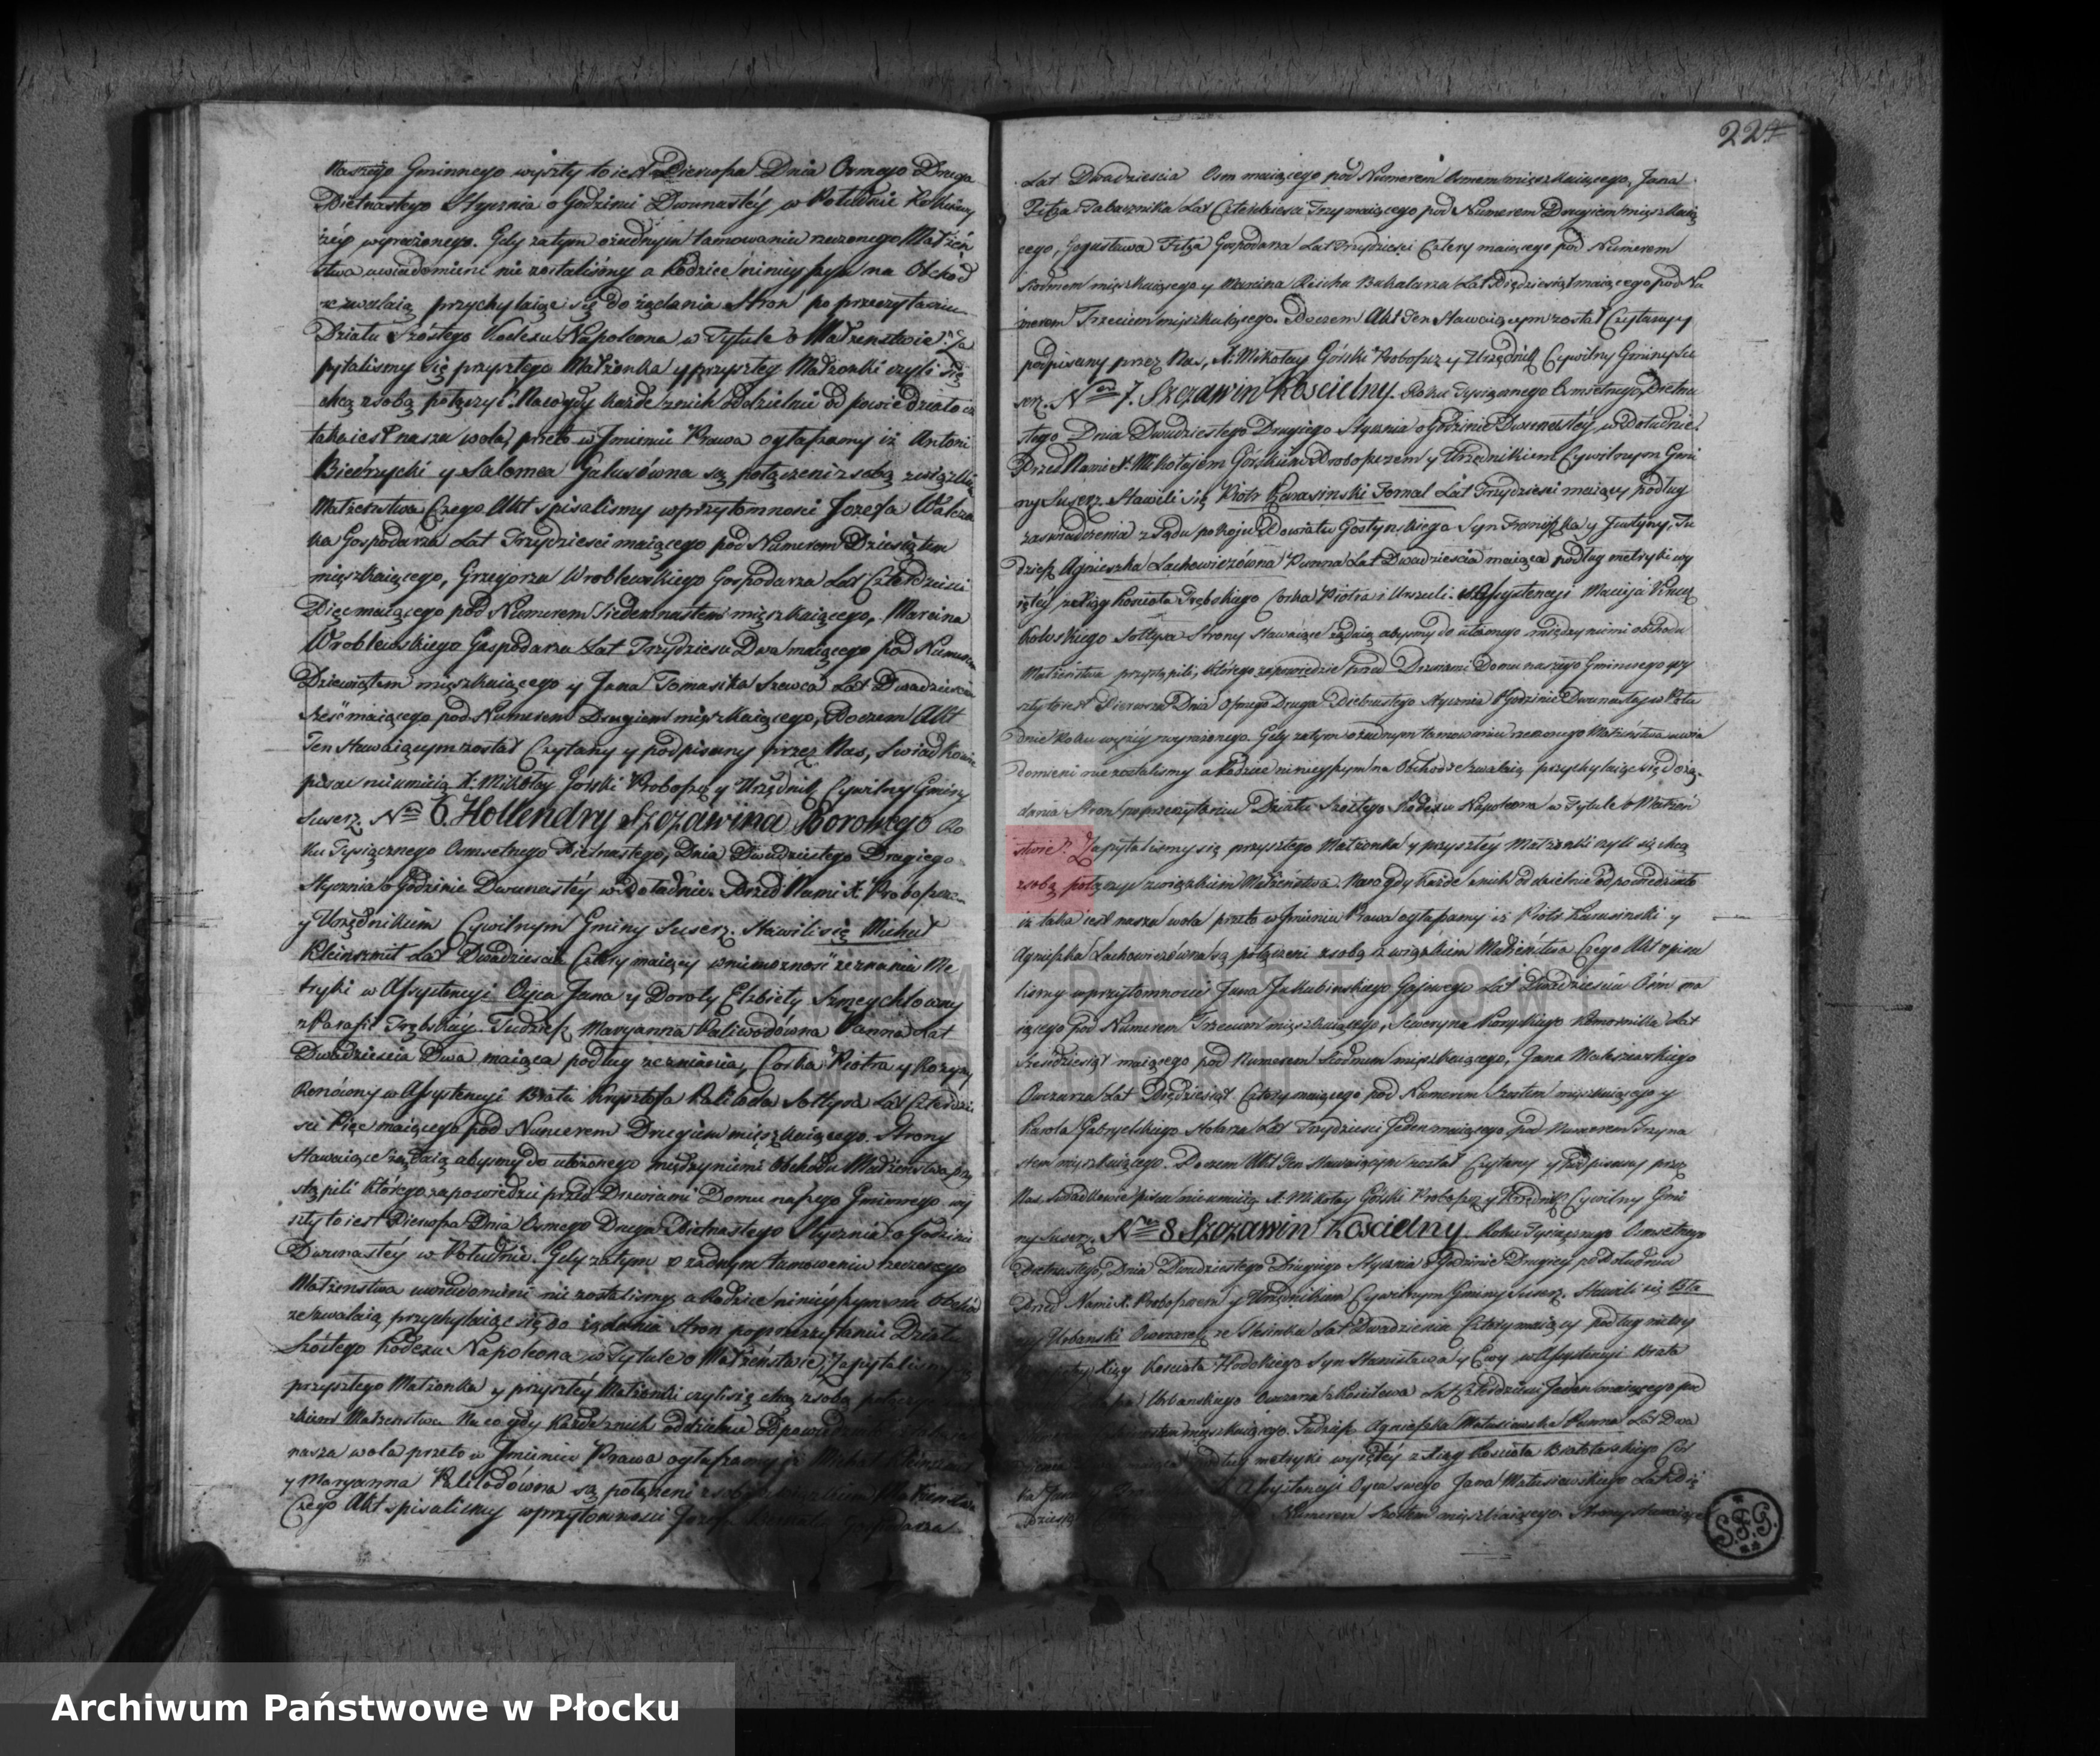 Naszego Gminnego wyszły to iest Pierwsza Dnia Osmego Druga
Pietnastego Stycznia o Godzinie Dwunastéy w Południe Roku wy
żéy wyrażonego. Gdy zatym ożadnym tamowaniu rzeczonego Małżeń
stwa uwiadomieni nie zostaliśmy a Rodzice ninieyszym na Obchód
zezwalaią przychylaiąc się do żądania Stron po przeczytaniu
Działu Szóstego Kodexu Napoleona w Tytule o Małżenstwie. Za
pytalismy się przyszłego Małżonka y przyszłey Małżonki czyli się
chcą zsobą połączyć. Naco gdy każde znich oddzielnie odpowiedziało iż
taka iest nasza wola, przeto w Jmieniu Prawa ogłaszamy iż Antoni
Biedrzycki y Salomea Galusówna są połączeni zsobą związkiem
Małżeństwa Czego Akt spisalismy wprzytomnosci Jozefa Walcza
ka Gospodarza Lat Trzydziesci maiącego pod Numerem Dziesiątem
mięszkaiącego, Grzegorza Wroblewskiego Gospodarza Lat Czterdzieści
Pięc maiącego pod Numerem Siedemnastem mięszkaiącego, Marcina
Wroblewskiego Gospodarza Lat Trzydziesci Dwa maiącego pod Numerem
Dziewiątem mięszkaiącego y Jana Tomasika Szewca Lat Dwadzieścia
Sześć maiącego pod Numerem Drugiem mięszkaiącego, Poczem Akt
Ten Stawaiącym został Czytany y podpisany przez Nas, Swiadkowie
pisac nieumieią X. Mikołay Górski Proboszcz y Urzędnik Cywilny Gminy
Suserz. Nro 6. Hollendry Szczawina Borowego Ro
ku Tysiącznego Osmsetnego Pietnastego, Dnia Dwudziestego Drugiego
Stycznia o Godzinie Dwunastéy w Południe. Przed Nami X. Proboszcz
y Urzędnikiem Cywilnym Gminy Suserz. Stawili się Michał
Kleinszmit Lat Dwadziescia Cztery maiący wniemożnosć zeznania Me
tryki w Assystencyi Oyca Jana y Doroty Elżbiety Szmeychlowny
z Parafii Trębskiéy. Tudzież Maryanna Paliwodówna Panna Lat
Dwadziescia Dwa maiąca podług zeznania, Corka Piotra y Rozyny
Renówny w Assystencyi Brata Krysztofa Paliwoda Sołtysa Lat Czterdzie
sci Pięc maiącego pod Numerem Drugiem mięszkaiącego. Strony
Stawaiące żądaią abysmy do ułożonego międzyniemi Obchodu Małżenstwa przy
stąpili którego zapowiedzi przed Drzwiami Domu naszego Gminnego wy
szły to iest Pierwsza Dnia Osmego Druga Pietnastego Stycznia o Godzinie
Dwunastéy w Południe. Gdy zatym o żadnym tamowaniu rzeczonego
Małżenstwa uwiadomieni nie zostalismy, a Rodzice ninieyszym na Obchód
zezwalaią, przychylaiąc się do żądania Stron poprzeczytaniu Działu
Szóstego Kodexu Napoleona w Tytule o Małżeństwie, Zapytalismy
przyszłego Małżonka y przyszłéy Małżonki czyli się chcą zsobą połączyć
zkiem Małżenstwa Na co gdy każde znich oddzielnie odpowiedziało
nasza wola przeto w Jmieniu Prawa ogłaszamy iż Michał Kleinszmit
y Maryanna Paliwodówna są połączeni zsobą
Czego Akt spisalismy wprzytomnosci Gospodarza
224
Lat Dwadziescia Osm maiącego pod Numerem Osmem mięszkaiącego, Jana
Fitza Tabacznika Lat Czterdziesci Trzy maiącego pod Numerem Drugiem mięszkaią
cego, Gogusława Fitza Gospodarza Lat Trzydziesci Cztery maiącego pod Numerem
Siodmem mięszkaiącego y Marcina Reicha Bakalarza Lat Pięćdziesiąt maiącego pod Nu
merem Trzeciem mięszkaiącego. Poczem Akt Ten Stawaiącym został Czytany y
podpisany przez Nas, X. Mikołay Górski Proboszcz y Urzędnik Cywilny Gminy Su
serz. Nro 7. Szczawin Kościelny. Roku Tysiącznego Osmsetnego Pietna
stego Dnia Dwudziestego Drugiego Stycznia o Godzinie Dwunastéy w Południe.
Przed Nami X. Mikołajem Górskim Proboszczem y Urzędnikiem Cywilnym Gmi
ny Suserz. Stawili się Piotr Karasinski Fornal Lat Trzydziesci maiący podług
zaswiadczenia z Sądu pokoju Powiatu Gostynskiego Syn Franciszka y Justyny, Tu
dzież Agnieszka Lachowiczówna Panna Lat Dwadziescia maiąca podług metryki wy
iętéy z Xiąg Koscioła Trębskiego Corka Piotra i Urszuli. w Assystencyi Macieja
Sołtysa Strony Stawaiące żądaią abysmy do ułożonego między niemi obchodu
Małżeństwa przystąpili, którego zapowiedzie przed Drzwiami Domu naszego Gminnego wy
szły to iest Pierwsza Dnia Osmego Druga Pietnastego Stycznia o Godzinie Dwunastéy w Połu
dnie Roku wyżéy wyrażonego. Gdy zatym ożadnym tamowaniu rzeczonego Małżeństwa uwia
domieni nie zostalismy a Rodzice ninieyszym na Obchód zezwalaią, przychylaiąc się do żą
dania Stron poprzeczytaniu Działu Szóstego Kodexu Napoleona w Tytule o Małżeń
stwie. Zapytalismy się przyszłego Małżonka y przyszłéy Małżonki czyli się chcą
zsobą połączyc związkiem Małżeństwa. Naco gdy każde znich oddzielnie odpowiedziało
iż taka iest nasza wola przeto w Jmieniu Prawa ogłaszamy iż Piotr Karasinski y
Agnieszka Lachowiczówna są połączeni zsobą związkiem Małżeństwa Czego Akt spisa
lismy wprzytomnosci Jana Jakubinskiego Gajowego Lat Dwadziescia Osm ma
iącego pod Numerem Trzeciem mięszkaiącego, Seweryna Komornika Lat
Sześcdziesiąt maiącego pod Numerem Siodmem mięszkaiącego, Jana Maliszewskiego
Owczarza Lat Pięćdziesiąt Cztery maiącego pod Numerem Szostem mięszkaiącego y
Karola Gabryelskiego Stolarza Lat Trzydziesci Jeden maiącego pod Numerem Trzyna
stem mięszkaiącego. Poczem Akt Ten Stawaiącym został Czytany y podpisany przez
Nas Swiadkowie pisac nieumieią X. Mikołay Górski Proboszcz y Urzędnik Cywilny Gmi
ny Suserz. Nro 8 Szczawin Kościelny. Roku Tysiącznego Osmsetnego
Pietnastego, Dnia Dwudziestego Drugiego Stycznia o Godzinie Drugiey po Południu
Przed Nami X. Proboszczem y Urzędnikiem Cywilnym Gminy Suserz. Stawili się Bła
żej Urbanski Owczarek ze Lat Dwadziescia Cztery maiący podług metry
Xiąg Koscioła Syn Stanisława y Ewy w Assystencyi Brata
Urbanskiego Owczarza Lat Czterdziesci Jeden maiącego pod
mięszkaiącego. Tudzież Agnieszka Matusiewska Panna Lat Dwa
podług metryki wyiętéy z Xiąg Koscioła Białotarskiego Cor
ka Jana Assystencyi Oyca swego Jana Matusiewskiego Lat Pię
dziesiąt Numerem Szostem mięszkaiącego. Strony Stawaiące
S.A.G.
ARCHIWUM PAŃSTWOWE
W PŁOCKU
Archiwum Państwowe w Płocku